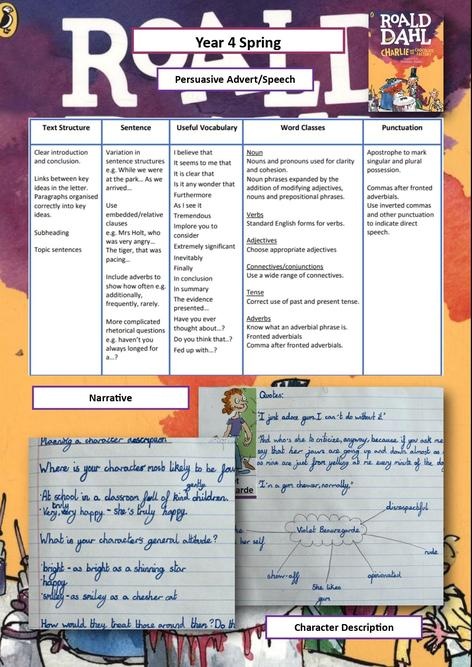 ROALD
Year 4 Spring
ROALD
DAHL
CHARLIE AND THE CHOCOLATE FACTORY
Persuasive Advert/Speech
Text Structure
Sentence
Useful Vocabulary
Word Classes
Punctuation
Clear introduction
and conclusion.
Links between key
ideas in the letter.
Paragraphs organised
correctly into key
ideas.
Subheading
Topic sentences
Variation in
sentence structures
e.g. While we were
at the park... As we
arrived...
Use
embedded/relative
clauses
e.g. Mrs Holt, who
was very angry...
The tiger, that was
pacing...
Include adverbs to
show how often e.g.
additionally,
frequently, rarely.
More complicated
rhetorical questions
e.g. haven't you
always longed for
a...?
I believe that
It seems to me that
It is clear that
Is it any wonder that
Furthermore
As I see it
Tremendous
Implore you to
consider
Extremely significant
Inevitably
Finally
In conclusion
In summary
The evidence
presented...
Have you ever
thought about...?
Do you think that..?
Fed up with...?
Noun
Nouns and pronouns used for clarity
and cohesion.
Noun phrases expanded by the
addition of modifying adjectives,
nouns and prepositional phrases.
Verbs
Standard English forms for verbs.
Adjectives
Choose appropriate adjectives
Connectives/conjunctions
Use a wide range of connectives.
Tense
Correct use of past and present tense.
Adverbs
Know what an adverbial phrase is.
Fronted adverbials
Comma after fronted adverbials.
Apostrophe to mark
singular and plural
possession.
Commas after fronted
adverbials.
Use inverted commas
and other punctuation
to indicate direct
speech.
Narrative
Planning a character description
Where is your character most likely to be fou
gently
At school in a classroom full of kind children.
truly
Very, very happy - she's truly happy.
What is your character's general attitude?
bright - as bright as a shinning star
happy
smiley - as smiley as a chesher cat
How would they treat those around them? Do th
Quotes:
"I just adore gum I can't do without it"
And who's she to criticize, anyway, because if you ask me
say that her jaws are going up and down almost as
as mine are just from yelling at me every minute of the da
"I'm a gum chewer, normally,"
arde
disrespectful
Violet Beauregarde
her self
rude
show-off
She likes
gum
opionated
Character Description